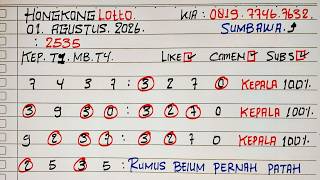 HONGKONG LOTTO. WA: 0819.7746.7632.
01. AGUSTUS. 2026. SUMBAWA.
: 2535
KEP. T1. MB. T4. LIKE CAMEN SUBS
7 4 3 7 : 3 2 7 0 KEPALA 100%
3 9 3 0 : 3 2 7 0 KEPALA 100%
9 2 3 7 : 3 2 7 0 KEPALA 100%
2 5 3 5 : RUMUS BELUM PERNAH PATAH